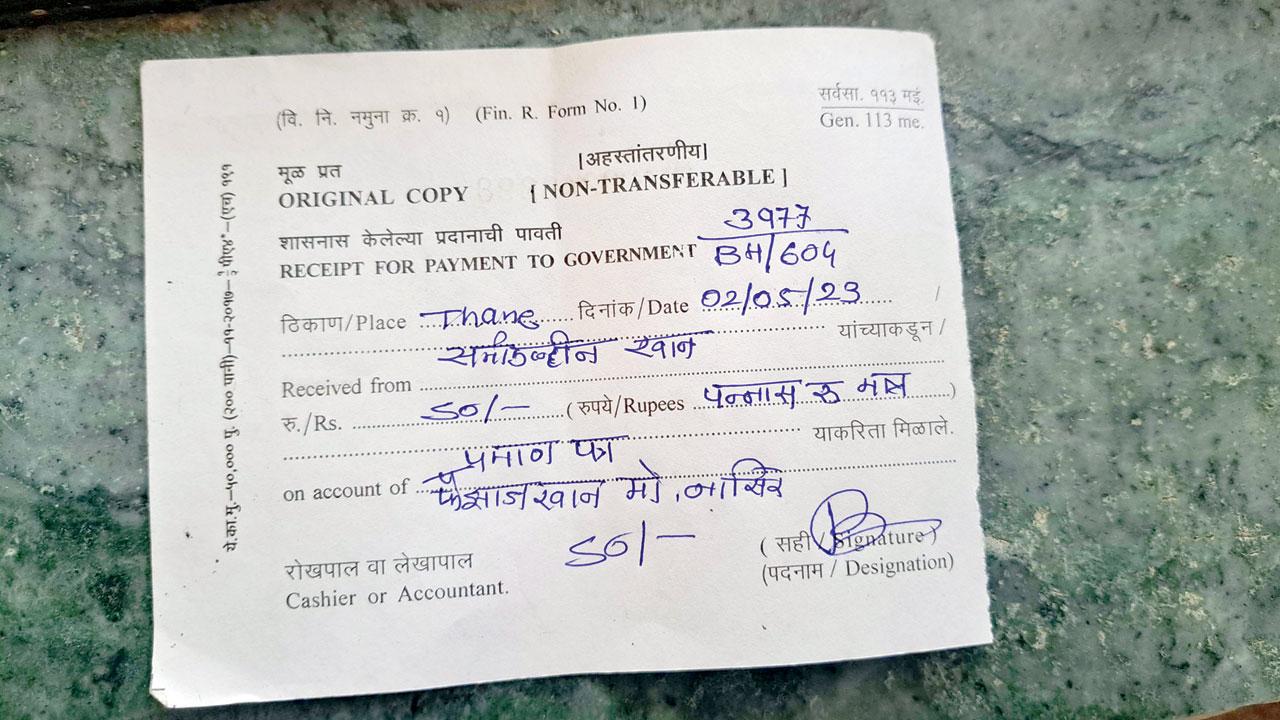 (वि. नि. नमुना क्र. १) (Fin. R. Form No. 1)
सर्वसा. ११३ मइं.
Gen. 113 me.
मूळ प्रत
[अहस्तांतरणीय]
ORIGINAL COPY [ NON-TRANSFERABLE ]
शासनास केलेल्या प्रदानाची पावती
3977
RECEIPT FOR PAYMENT TO GOVERNMENT BH/604
ठिकाण/Place Thane दिनांक/Date 02/05/23 /
खान यांच्याकडून /
Received from
रु./Rs. ५०/- ( रुपये/Rupees पन्नास रु मात्र )
प्रमान पत्र याकरिता मिळाले.
on account of फैझाज खान मो. नासिर
५०/-
( सही / Signature )
रोखपाल वा लेखापाल
(पदनाम / Designation)
Cashier or Accountant.